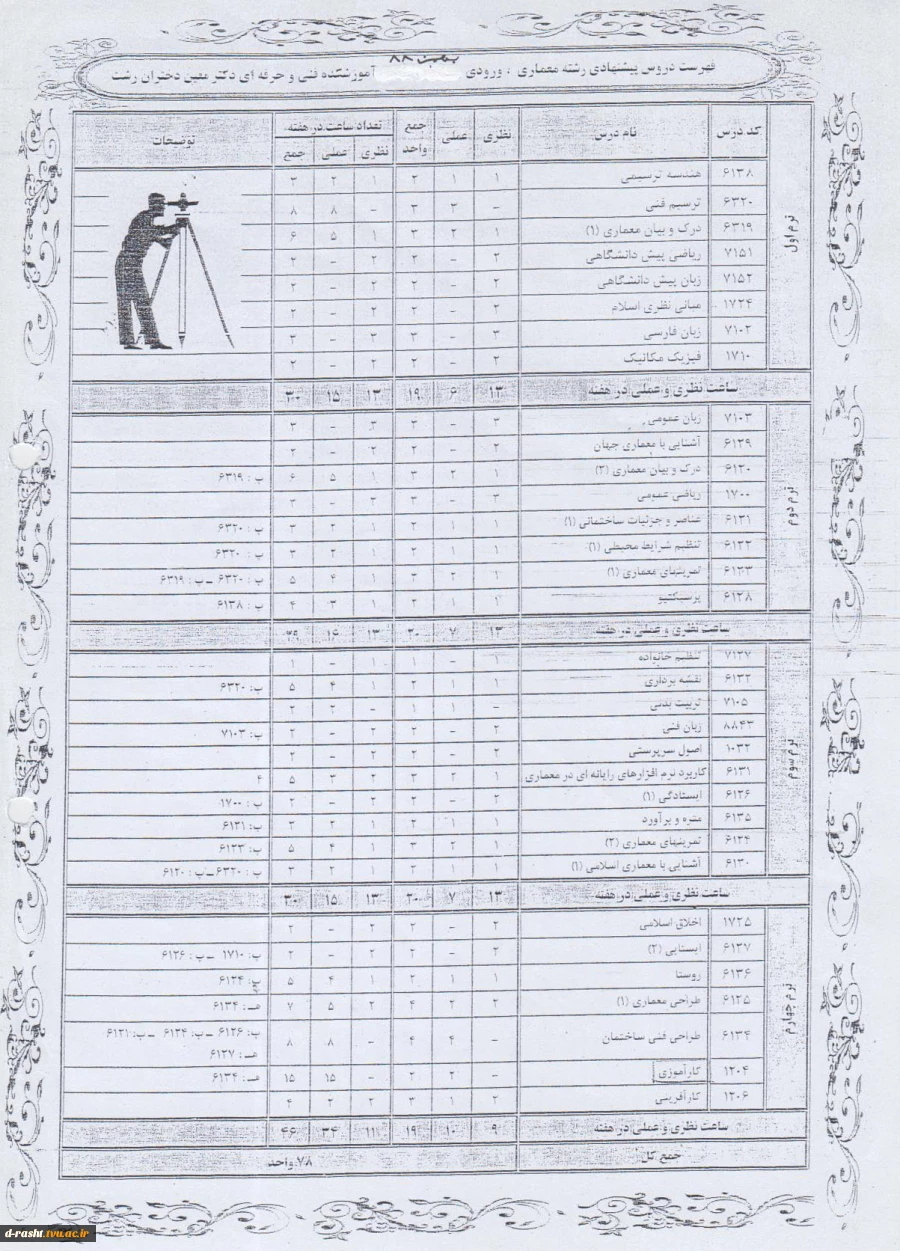 فهرست دروس پیشنهادی رشته معماری ، ورودی بهمن ۸۸ آموزشکده فنی و حرفه ای دکتر معین دختران رشت
کد درس نام درس نظری عملی جمع واحد تعداد ساعت در هفته توضیحات
نظری عملی جمع
ترم اول
۶۱۳۸ هندسه ترسیمی ۱ ۱ ۲ ۱ ۲ ۳
۶۳۲۰ ترسیم فنی - ۳ ۳ - ۸ ۸
۶۳۱۹ درک و بیان معماری (۱) ۱ ۲ ۳ ۱ ۵ ۶
۷۱۵۱ ریاضی پیش دانشگاهی ۲ - ۲ ۲ - ۲
۷۱۵۲ زبان پیش دانشگاهی ۲ - ۲ ۲ - ۲
۱۷۲۴ مبانی نظری اسلام ۲ - ۲ ۲ - ۲
۷۱۰۲ زبان فارسی ۳ - ۳ ۳ - ۳
۱۷۱۰ فیزیک مکانیک ۲ - ۲ ۲ - ۲
ساعت نظری و عملی در هفته ۱۳ ۶ ۱۹ ۱۳ ۱۵ ۳۰
ترم دوم
۷۱۰۳ زبان عمومی ۳ - ۳ ۳ - ۳
۶۱۲۹ آشنایی با معماری جهان ۲ - ۲ ۲ - ۲
۶۱۲۰ درک و بیان معماری (۲) ۱ ۲ ۳ ۱ ۵ ۶ پ : ۶۳۱۹
۱۷۰۰ ریاضی عمومی ۳ - ۳ ۳ - ۳
۶۱۲۱ عناصر و جزئیات ساختمانی (۱) ۱ ۱ ۲ ۱ ۲ ۳ پ : ۶۳۲۰
۶۱۲۲ تنظیم شرایط محیطی (۱) ۱ ۱ ۲ ۱ ۲ ۳ پ : ۶۳۲۰
۶۱۲۳ تمرینهای معماری (۱) ۱ ۲ ۳ ۱ ۴ ۵ پ : ۶۳۲۰ ــ پ : ۶۳۱۹
۶۱۲۸ پرسپکتیو ۱ ۱ ۲ ۱ ۳ ۴ پ : ۶۱۳۸
ساعت نظری و عملی در هفته ۱۳ ۷ ۲۰ ۱۳ ۱۶ ۲۹
ترم سوم
۷۱۲۷ تنظیم خانواده ۱ - ۱ ۱ - ۱
۶۱۳۲ نقشه برداری ۱ ۱ ۲ ۱ ۴ ۵ پ: ۶۳۲۰
۷۱۰۵ تربیت بدنی - ۱ ۱ - ۲ ۲
۸۸۴۳ زبان فنی ۲ - ۲ ۲ - ۲ پ: ۷۱۰۳
۱۰۳۲ اصول سرپرستی ۲ - ۲ ۲ - ۲
۶۱۳۱ کاربرد نرم افزارهای رایانه ای در معماری ۱ ۲ ۳ ۲ ۳ ۵ ۴
۶۱۲۶ ایستادگی (۱) ۲ - ۲ ۲ - ۲ پ : ۱۷۰۰
۶۱۳۵ متره و برآورد ۱ ۱ ۲ ۱ ۲ ۳ پ: ۶۱۲۱
۶۱۲۴ تمرینهای معماری (۲) ۱ ۲ ۳ ۱ ۴ ۵ پ: ۶۱۲۳
۶۱۳۰ آشنایی با معماری اسلامی (۱) ۱ ۱ ۲ ۱ ۲ ۳ پ : ۶۳۲۰ــ پ : ۶۱۲۰
ساعت نظری و عملی در هفته ۱۳ ۷ ۲۰ ۱۳ ۱۵ ۳۰
ترم چهارم
۱۷۲۵ اخلاق اسلامی ۲ - ۲ ۲ - ۲
۶۱۲۷ ایستایی (۲) ۲ - ۲ ۲ - ۲ پ: ۱۷۱۰ ــ پ : ۶۱۲۶
۶۱۳۶ روستا ۱ ۱ ۲ ۱ ۴ ۵ پ: ۶۱۲۴
۶۱۲۵ طراحی معماری (۱) ۲ ۲ ۴ ۲ ۵ ۷ هـ : ۶۱۳۴
۶۱۳۴ طراحی فنی ساختمان - ۴ ۴ - ۸ ۸ پ: ۶۱۲۶ ــ پ: ۶۱۲۴ ــ پ: ۶۱۲۱
هـ : ۶۱۲۷
۱۲۰۴ کارآموزی - ۲ ۲ - ۱۵ ۱۵ هـ : ۶۱۳۴
۱۲۰۶ کارآفرینی ۲ ۱ ۳ ۲ ۲ ۴
ساعت نظری و عملی در هفته ۹ ۱۰ ۱۹ ۱۱ ۳۴ ۴۶
جمع کل ۷۸ واحد
d-rasht.tvu.ac.ir